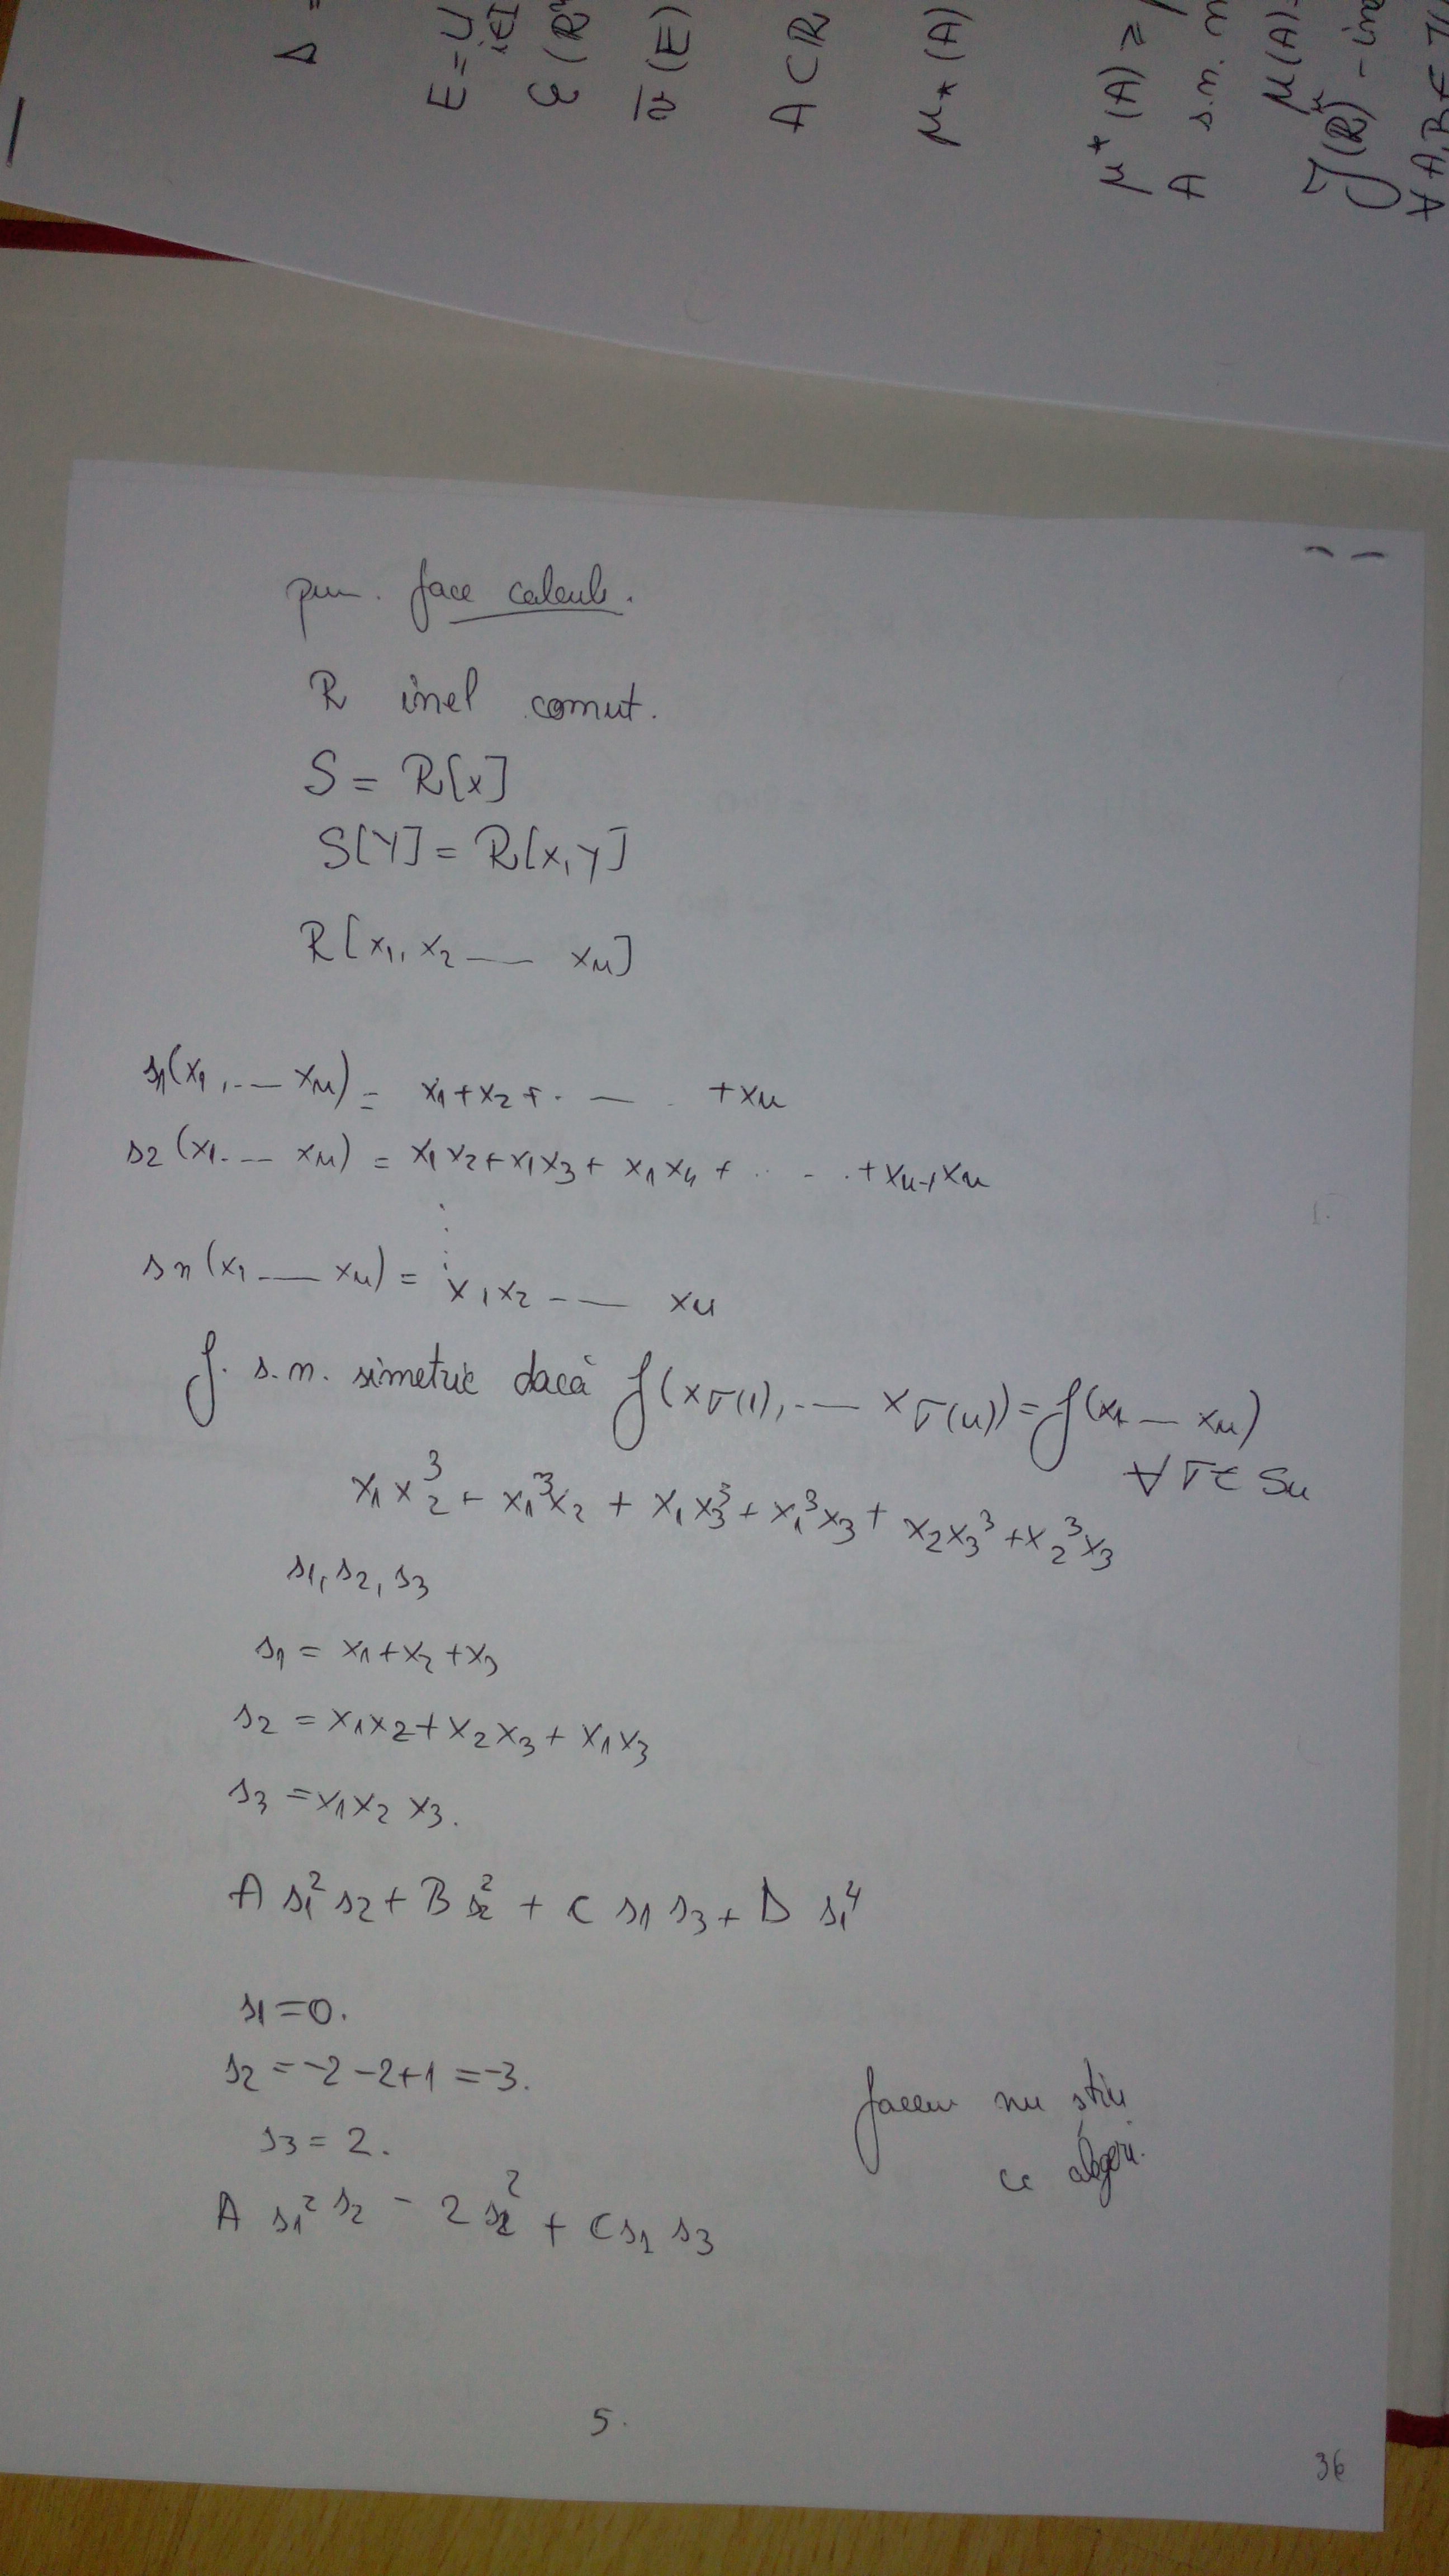 Δ =
E = U i∈I
ℰ (ℝⁿ
(E)
A ⊂ ℝ
μ⋆ (A)
μ* (A) ≥
A s.m. m
μ(A)=
∀ A,B ∈
face calcule.
R inel comut.
S = R[x]
S[Y] = R[x,y]
R[x₁, x₂ — — xₙ]
s₁(x₁, .. — xₙ) = x₁+x₂+ . — . +xₙ
s₂ (x₁. .. — xₙ) = x₁x₂+x₁x₃+ x₁x₄ + . . - . .+xₙ₋₁xₙ
⋮
sn (x₁ — — xₙ) = x₁x₂ -- — xₙ
f. s.m. simetric dacă f(x σ(1), .. — x σ(n)) = f(x₁ — xₙ)
∀ σ ∈ Sn
x₁x₂³ + x₁³x₂ + x₁x₃³ + x₁³x₃ + x₂x₃³ + x₂³x₃
s₁, s₂, s₃
s₁ = x₁+x₂+x₃
s₂ = x₁x₂+x₂x₃+x₁x₃
s₃ = x₁x₂x₃.
A s₁² s₂ + B s₂² + C s₁ s₃ + D s₁⁴
s₁=0.
s₂ = -2 -2+1 = -3.
s₃ = 2.
facem nu știu
ce alegeri.
A s₁² s₂ - 2 s₂² + C s₁ s₃
5.
36